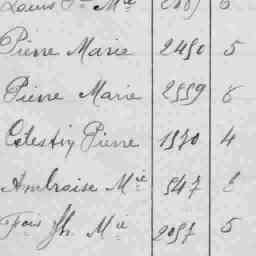 Louis Mie
Pierre Marie 2450 5
Pierre Marie 2559 8
Célestin Pierre 1570 4
Ambroise Mie 547 8
Fois Jh. Mie 2057 5